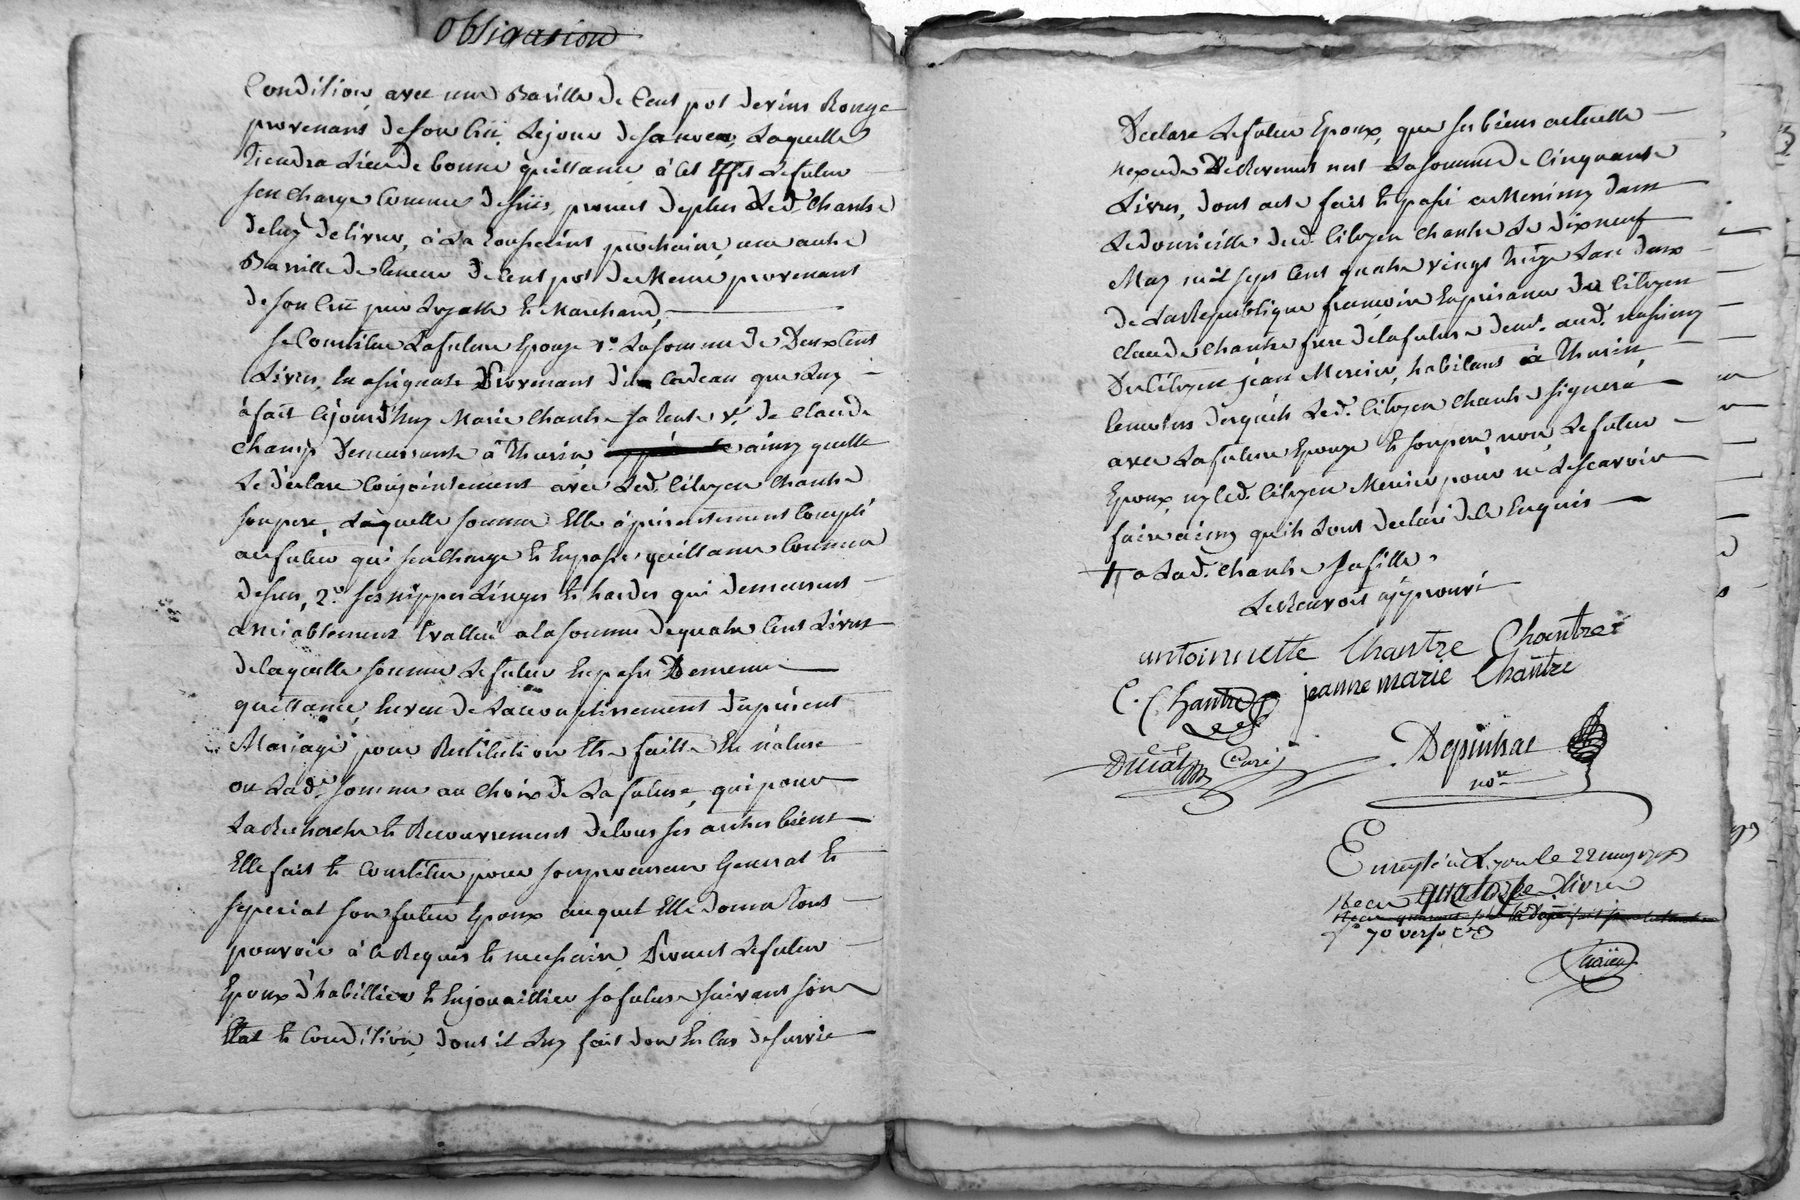 obligasion
Condition, avec une Barille de Cent pot de vins Rouge
provenans de son Crû, Le jour de sa noce, Laquelle
Tiendra Lieu de bonne quittance à Cet Effet Le futur
sen Charge Comme dessus, promet de plus Led. Chantre
de luy delivrer, à La Toussaint prochaine une autre
Barille de Teneur de Cent pot de Meme provenant
de son Crû pur Loyalle et Marchand,
Se Constitue La future Epouze 1°. La Somme de Deux Cent
Livres, En assignats Provenant d'un Cadeau que Luy
à fait Cejourd'huy Marie Chantre sa tente Ve. de Claude
Champ Demeurante à Thurin ainsy quelle
Le déclare Conjointement avec Led. Citoyen Chantre
son pere, Laquelle somme Elle à présentement Compté
au futur qui sen Charge et En passe quittance Comme
dessus, 2°. ses nippes Linges et hardes qui demeurent
amiablement Evalluée a la somme de quatre Cent Livres
de laquelle somme Le futur En passe De meme
quittance, En vue de L'accomplissement du présent
Mariage pour Restitution Etre faitte En nature
ou Lad. somme au Choix de La future, qui pour
La Recherche et Recouvrement de tous ses autres biens
Elle fait et Constitue pour son procureur General et
special son futur Epoux auquel Elle donne Tous
pouvoir à ce Requis et necessaire, Promet Le futur
Epoux d'habillier et Enjouaillier sa future suivant son
Etat et Condition, dont il Luy fait don En Cas de survie
Declare Le futur Epoux, que ses biens actuelle
nexcede De Revenut net La somme de Cinquante
Livres, dont acte fait et passé a Messimy dans
Le domicille dud. Citoyen Chantre Le dix neuf
May mil sept Cent quatre vingt treize Lan deux
de La Republique francoise En présance du Citoyen
Claude Chantre frere de la future demt. aud. Messimy
Du Citoyen jean Mercier, habitant à Thurin
temoins Desquels Led. Citoyen Chantre signera
avec La future Epouze et son pere non Le futur
Epoux, ny led. Citoyen Mercier pour ne Le scavoir
faire ainsy qu'ils L'ont declaré de Ce Enquis
a Lad. Chantre sa fille.
Le Renvoit approuvé
antoinnette Chantre Chantre
C. Chantre jeanne marie Chantre
Curé
Depinhac
nore
Enregté à Lyon le 22 may 1793
Recu quatorze Livres
fo 70 verso C